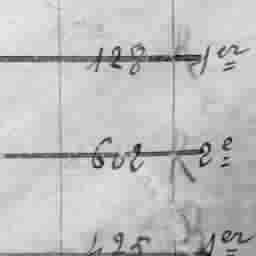 128 1er
602 2e
425 1er